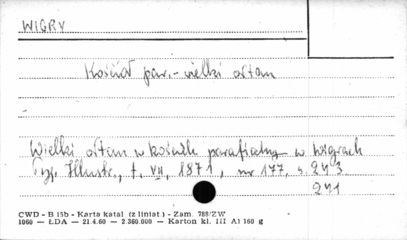 WIGRY
Kościół par. - wielki ołtarz
Wielki ołtarz w kościele parafialnym w Wigrach
Tyg. Illustr., t. VII, 1871, nr 177, s. 243
241
CWD - B 15b - Karta katal (z liniat.) - Zam. 788/ZW
1060 — ŁDA — 21.4.60 — 2.360.000 — Karton kl. III A1 160 g